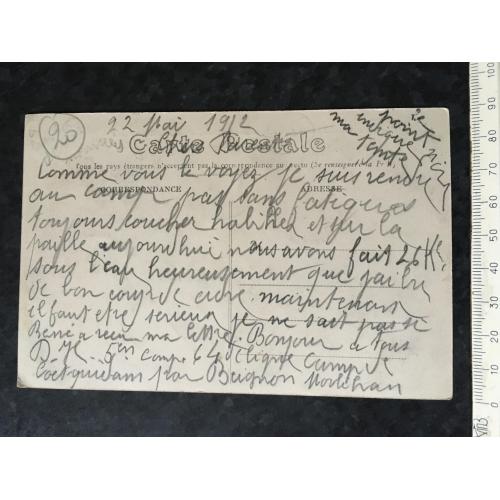 20
22 Mai 1912
Carte Postale
Tous les pays étrangers n'acceptent pas la correspondance au recto (Se renseigner à la Poste)
CORRESPONDANCE
ADRESSE
Comme vous le voyez je suis rendu
au camp pas sans fatigues
toujours coucher habillés et sur la
paille aujourdhui nous avons fait 26 K
sous l'eau heureusement que j'ai bu
de bon coup de cidre maintenant
il faut etre serieux je ne sait pas si
René a recu ma lettre. Bonjour a tous
5en camp de
Coetquidam par Beignon Morbihan
point
ma
0 10 20 30 40 50 60 70 80 90 100